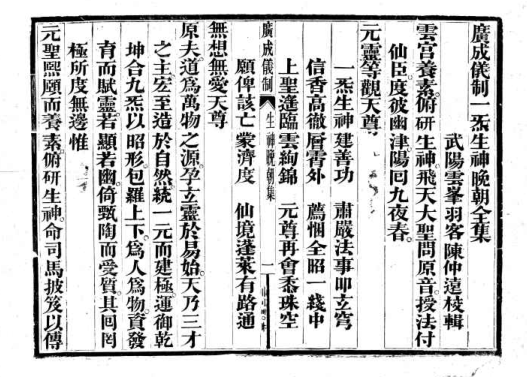 廣成儀制一炁生神晚朝全集
武陽雲峯羽客陳仲遠校輯
雲宮養素。俯研生神。飛天大聖問原音。授法付
仙臣。度彼幽津。陽囘九夜春。
元靈等觀天尊
一炁生神建善功 肅嚴法事叩玄穹
信香高徹層霄外 薦悃全昭一篆中
上聖遙臨雲絢錦 元尊再會黍珠空
願俾該亡蒙濟度 仙境蓬萊有路通
廣成儀制 生神晚朝集 一
無想無愛天尊
原夫。道為萬物之源。孕玄靈於易始。天乃三才
之主。宏至造於自然。統一元而建極。運御乾
坤。合九炁以昭形。包羅上下。為人為物。資發
育而賦靈。若顯若幽。倚甄陶而受質。其囘罔
極。所度無邊。惟
元聖熙願而養素。俯研生神。命司馬披笈以傳